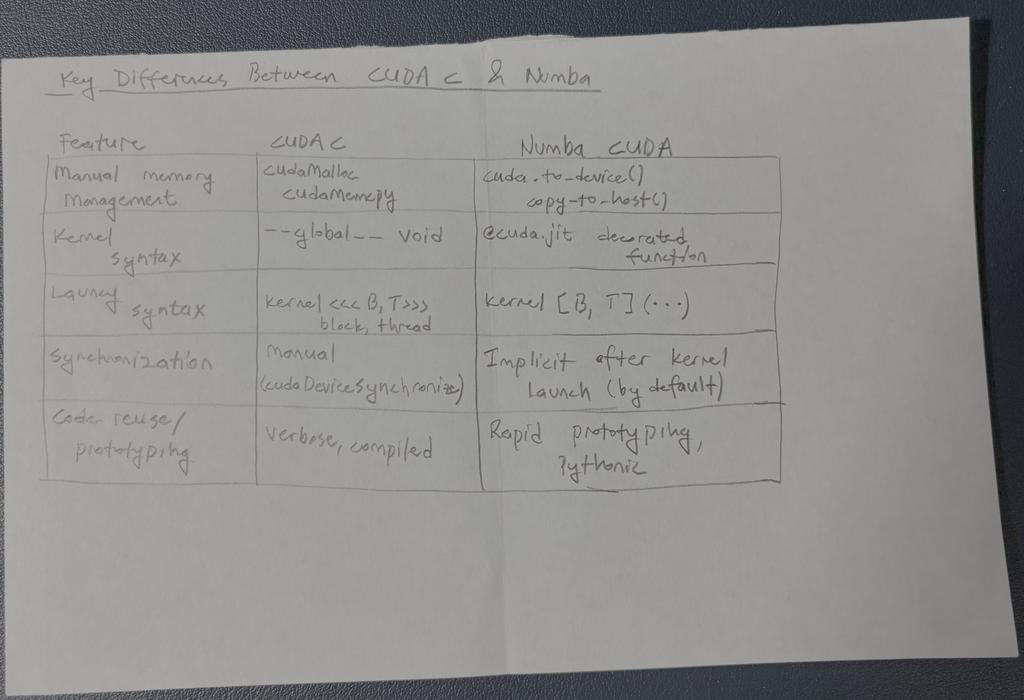 Key Differences Between CUDA C & Numba
Feature CUDA C Numba CUDA
Manual memory management cudaMalloc cudaMemcpy cuda.to_device() copy_to_host()
Kernel syntax __global__ void @cuda.jit decorated function
Launch syntax Kernel <<< B, T>>> block, thread Kernel [B, T] (...)
Synchronization Manual (cudaDeviceSynchronize) Implicit after kernel Launch (by default)
Code reuse/ prototyping Verbose, compiled Rapid prototyping, Pythonic